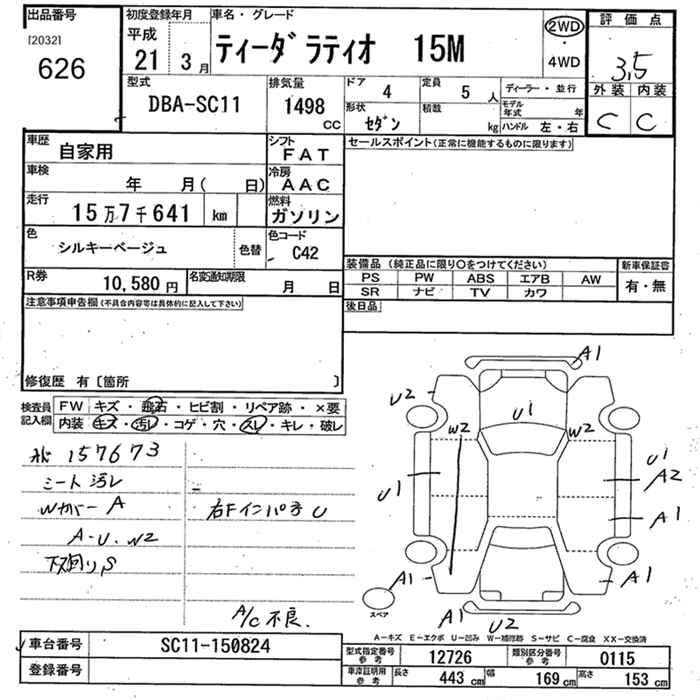 出品番号
[2032]
626
初度登録年月
平成
21 3月
車名・グレード
ティーダ ラティオ 15M
2WD
・
4WD
評価点
3.5
外装 内装
C C
型式
DBA-SC11
排気量
1498
CC
ドア
4
定員
5 人
形状
セダン
積載
kg
ディーラー・並行
モデル年式 年
ハンドル 左・右
車歴
自家用
シフト
FAT
車検
年 月( 日)
冷房
AAC
走行
15万7千641 km
燃料
ガソリン
色
シルキーベージュ
色替
色コード
C42
R券
10,580円
名変通知期限
月 日
セールスポイント(正常に機能するものに限ります)
装備品(純正品に限り○をつけてください)
PS PW ABS エアB AW
SR ナビ TV カワ
新車保証書
有・無
後日品
注意事項申告欄(不具合内容等は具体的に記入して下さい)
修復歴 有〔箇所 〕
検査員
記入欄
FW キズ・飛石・ヒビ割・リペア跡・×要
内装 キズ・汚レ・コゲ・穴・スレ・キレ・破レ
157673
シート汚レ
Wカバー A
A-U.W2
下廻りS
右Fインパネ U
A/C不良.
A1
U2
U1
W2
W2
U1
U1
A2
A1
A1
A1
A1
U2
スペア
A-キズ E-エクボ U-凹み W-補修跡 S-サビ C-腐食 XX-交換済
車台番号
SC11-150824
登録番号
型式指定番号
参考
12726
類別区分番号
参考
0115
車庫証明用
参考
長さ 443 cm
幅 169 cm
高さ 153 cm